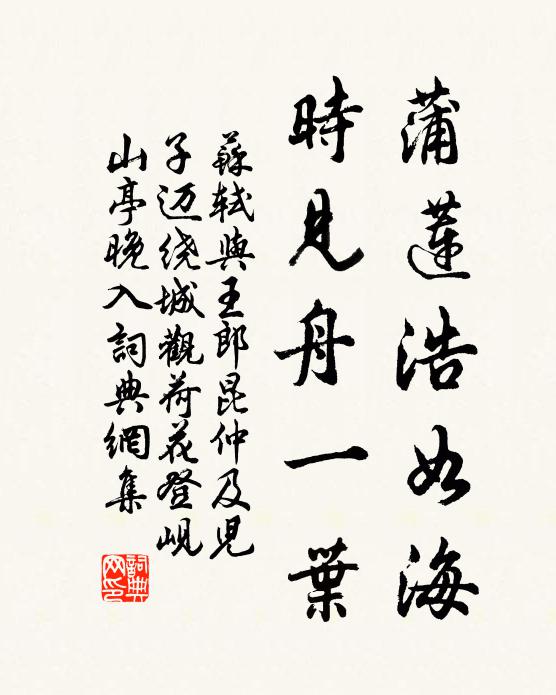 蒲蓮浩如海
時見舟一葉
蘇軾與王郎昆仲及児
子迈绕城觀荷花登岘
山亭晚入詞典網集
詞典
网印